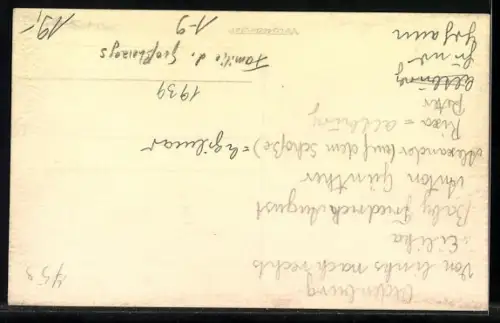 453
Oldenburg
Von links nach rechts
: Eilika
Baby Friedrich August
Anton Günther
Alexander (auf dem Schoße) = Egilmar
Rixa = Altburg
Peter
Altburg
Huno
Johann
1939
Familie d. Großherzogs
1-9
19,-